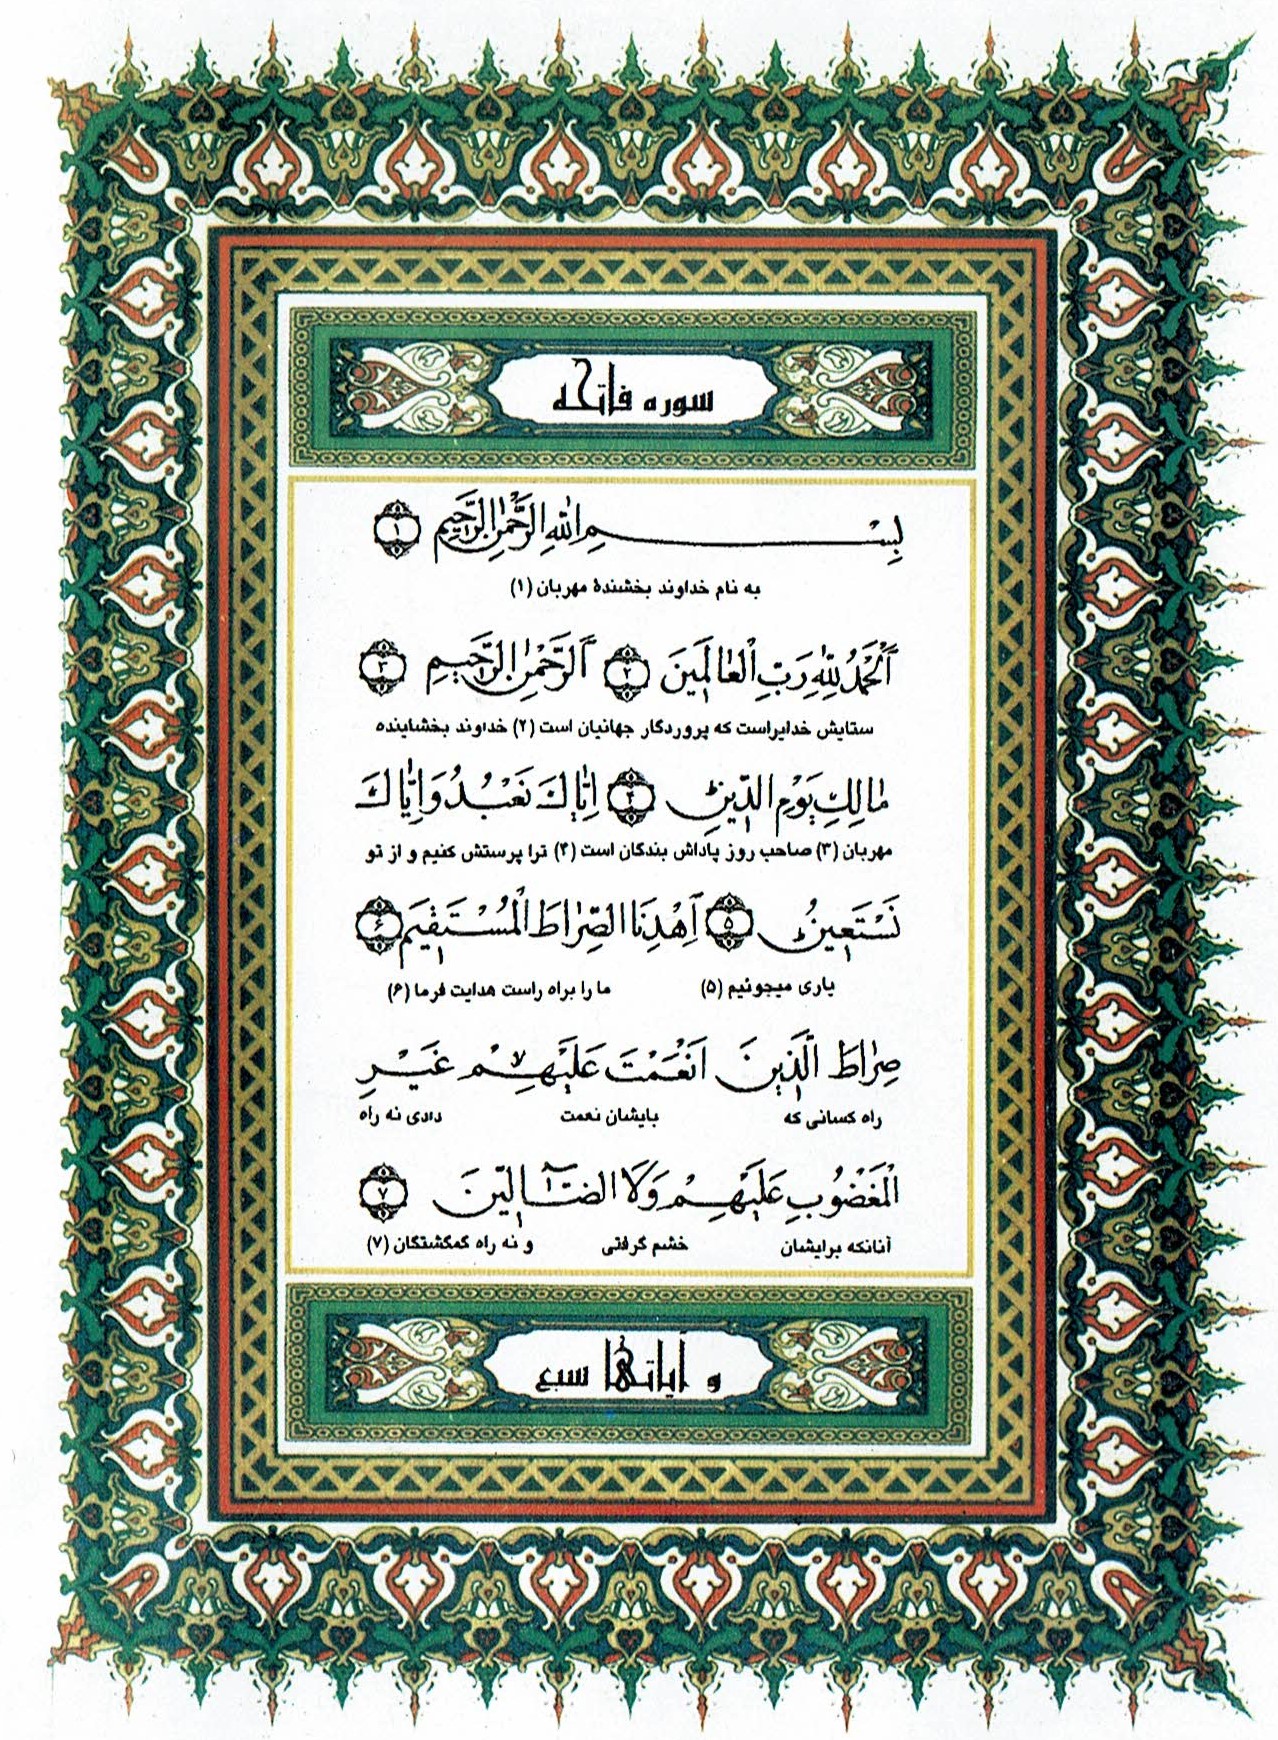 سوره فاتحه
بِسْمِ اللهِ الرَّحْمٰنِ الرَّحيمِ ﴿۱﴾
به نام خداوند بخشندهٔ مهربان (۱)
اَلْحَمْدُ لِلّٰهِ رَبِّ الْعٰالَمينَ ﴿۲﴾ اَلرَّحْمٰنِ الرَّحيمِ ﴿۳﴾
ستایش خدایراست که پروردگار جهانیان است (۲) خداوند بخشاینده
مٰالِكِ يَوْمِ الدّينِ ﴿۴﴾ اِيّٰاكَ نَعْبُدُ وَاِيّٰاكَ
مهربان (۳) صاحب روز پاداش بندگان است (۴) ترا پرستش کنیم و از تو
نَسْتَعينُ ﴿۵﴾ اَهْدِنَا الصِّرٰاطَ الْمُسْتَقيمَ ﴿۶﴾
یاری میجوئیم (۵) ما را براه راست هدایت فرما (۶)
صِرٰاطَ الَّذينَ اَنْعَمْتَ عَلَيْهِمْ ۙ غَيْرِ
راه کسانی که بایشان نعمت دادی نه راه
الْمَغْضُوبِ عَلَيْهِمْ وَلَا الضّٰٓالّينَ ﴿۷﴾
آنانکه برایشان خشم گرفتی و نه راه گمگشتگان (۷)
و آیاتها سبع